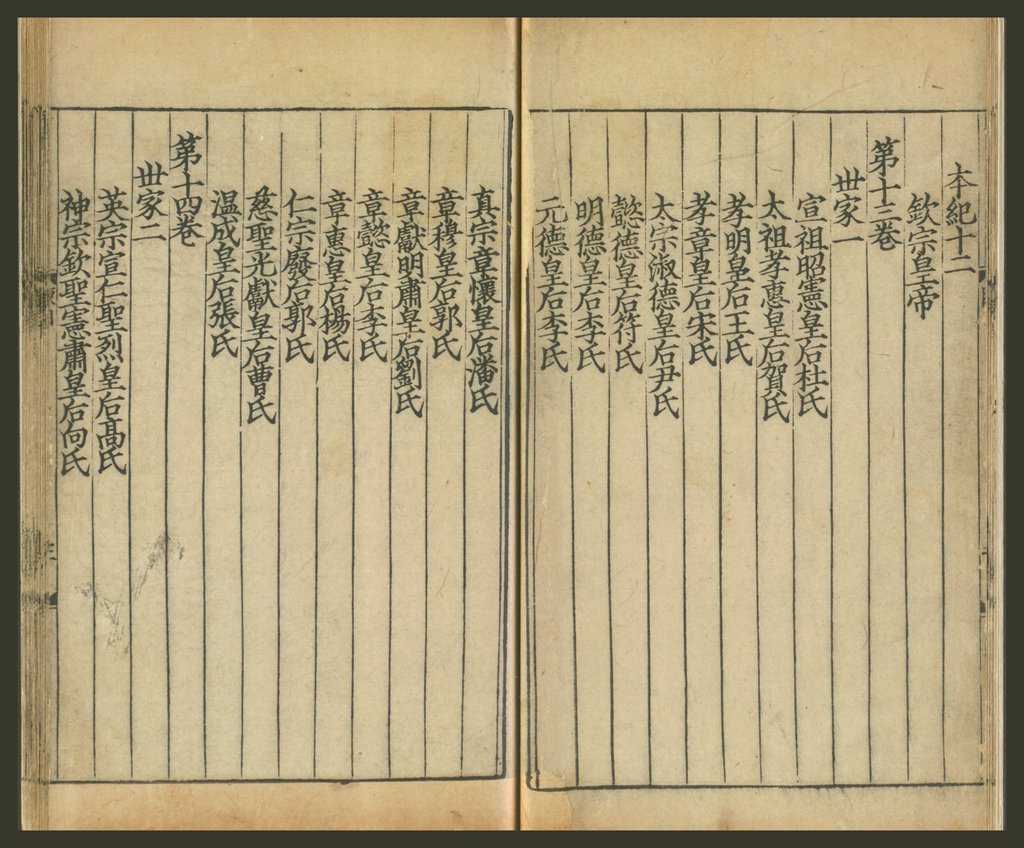 本紀十二
欽宗皇帝
第十三卷
丗家一
宣祖昭憲皇后杜氏
太祖孝惠皇后賀氏
孝明皇后王氏
孝章皇后宋氏
太宗淑德皇后尹氏
懿德皇后符氏
明德皇后李氏
元德皇后李氏
真宗章懷皇后潘氏
章穆皇后郭氏
章獻明肅皇后劉氏
章懿皇后李氏
章惠皇后楊氏
仁宗廢后郭氏
慈聖光獻皇后曹氏
温成皇后張氏
第十四卷
丗家二
英宗宣仁聖烈皇后髙氏
神宗欽聖憲肅皇后向氏